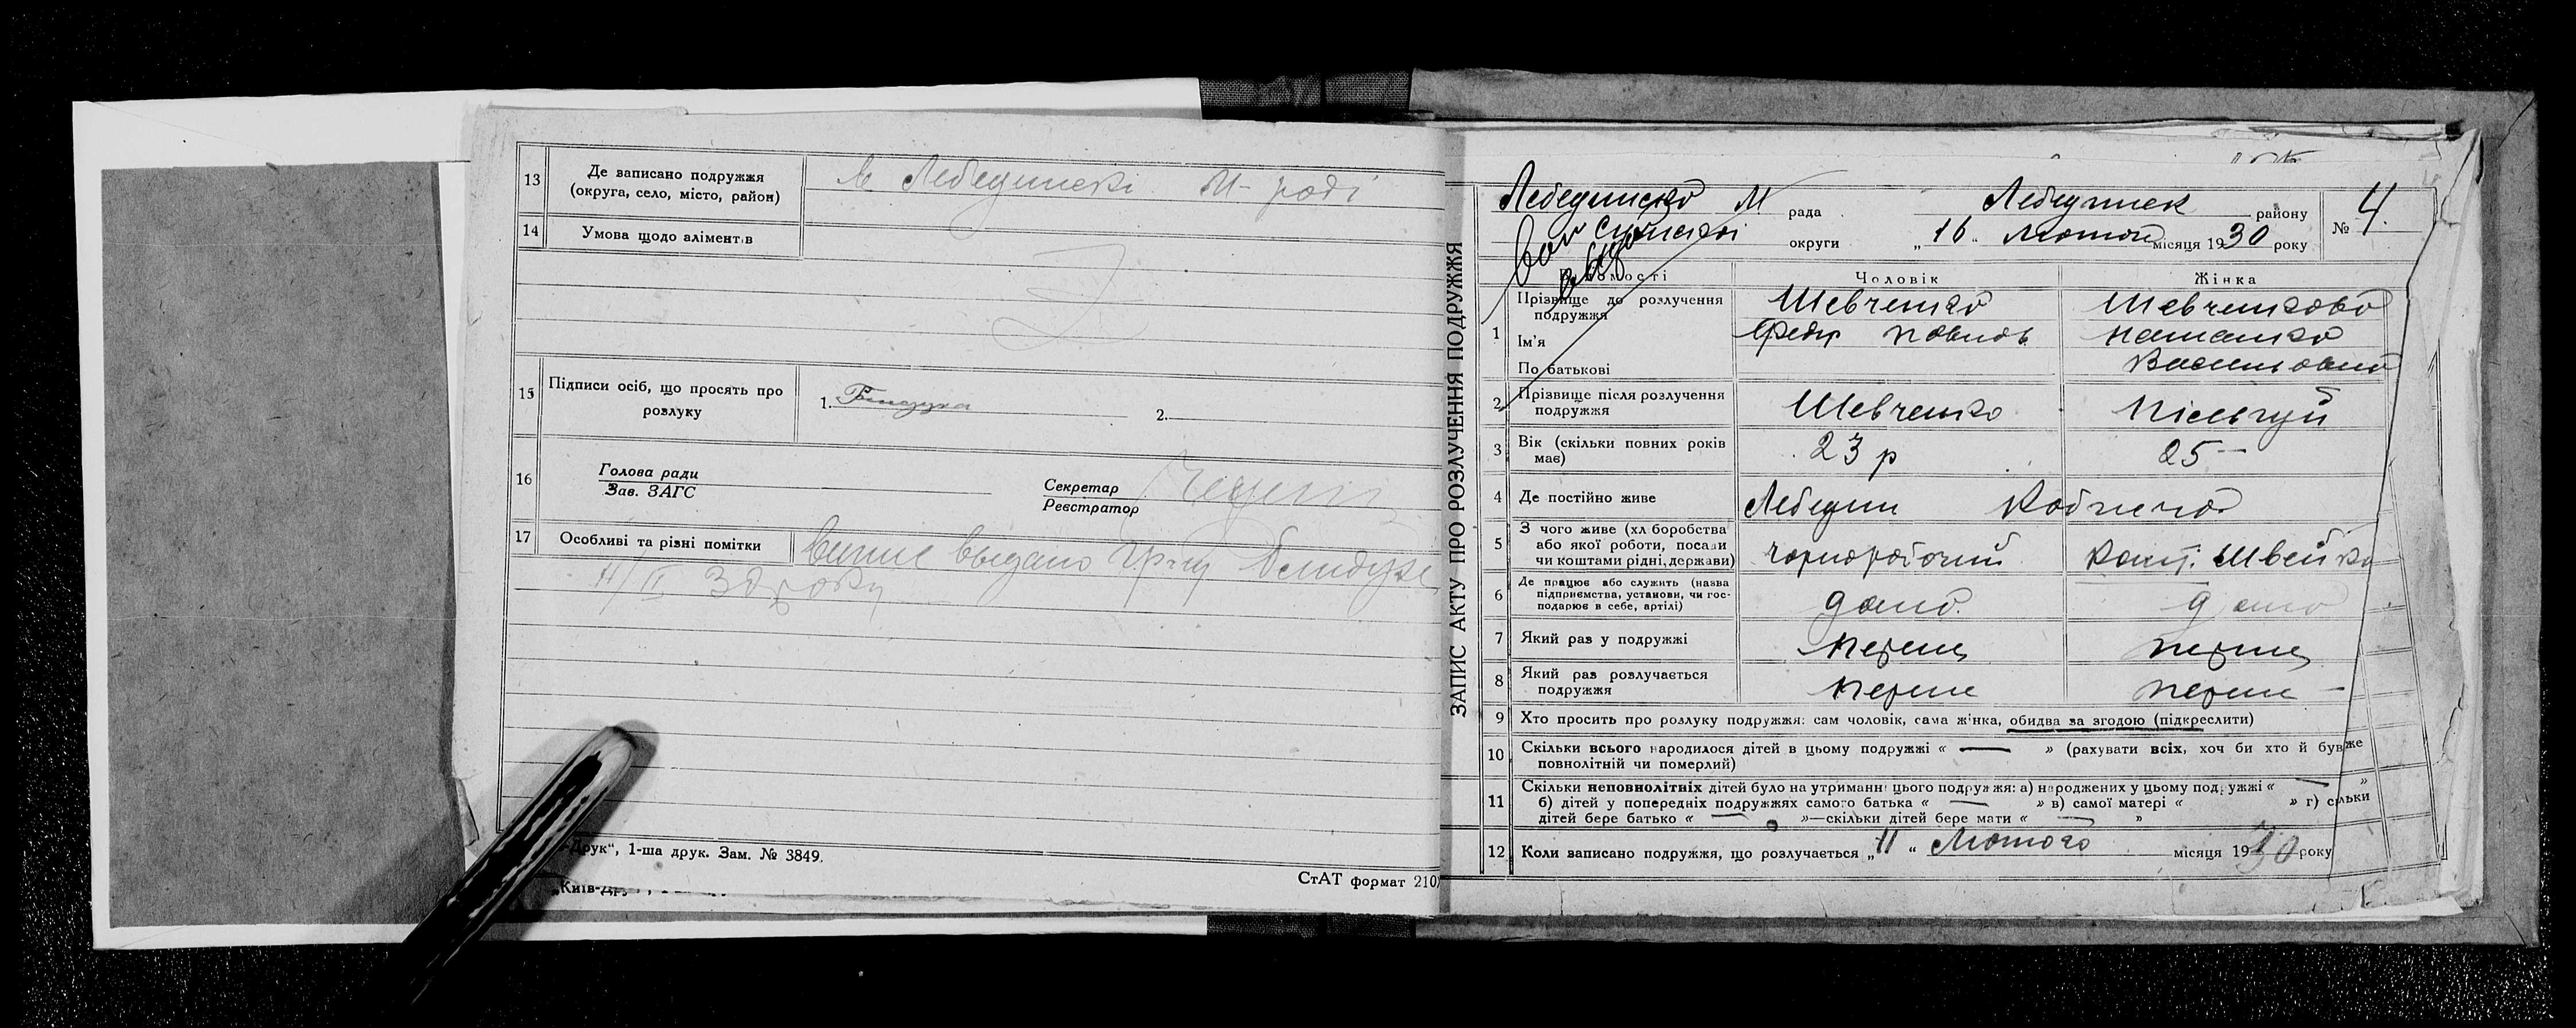 13 Де записано подружжя
(округа, село, місто, район)
в Лебединскі М-раді
14 Умова щодо аліментів
15 Підписи осіб, що просять про
розлуку
1. 2.
16 Голова ради
Зав. ЗАГС
Секретар
Реєстратор
17 Особливі та різні помітки
выдано
4/II 30 року
-Друк“, 1-ша друк. Зам. № 3849.
„Київ-Дру
СтАТ формат 210
ЗАПИС АКТУ ПРО РОЗЛУЧЕННЯ ПОДРУЖЖЯ
Лебединско М рада Лебединск району № 4.
Сумскої округи „16“ Лютого місяця 1930 року
Чоловік Жінка
1 Прізвище до розлучення
подружжя
Шевченко Шевченкова
Ім'я
Федір Павлов. Наталка
По батькові
Васильовна
2 Прізвище після розлучення
подружжя
Шевченко
3 Вік (скільки повних років
має)
23 р 25 —
4 Де постійно живе
Лебедин
5 З чого живе (хліборобства
або якої роботи, посади
чи коштами рідні, держави)
чорноробочий Швейка
6 Де працює або служить (назва
підприємства, установи, чи гос-
подарює в себе, артілі)
дома. дома
7 Який раз у подружжі
перший перший
8 Який раз розлучається
подружжя
перше перше —
9 Хто просить про розлуку подружжя: сам чоловік, сама жінка, обидва за згодою (підкреслити)
10 Скільки всього народилося дітей в цьому подружжі « — » (рахувати всіх, хоч би хто й був же
повнолітній чи померлий)
11 Скільки неповнолітніх дітей було на утриманні цього подружжя: а) народжених у цьому подружжі « — »
б) дітей у попередніх подружжях самого батька « — » в) самої матері « » г) скільки
дітей бере батько « — »—скільки дітей бере мати « — »
12 Коли записано подружжя, що розлучається „11“ Лютого місяця 1930 року